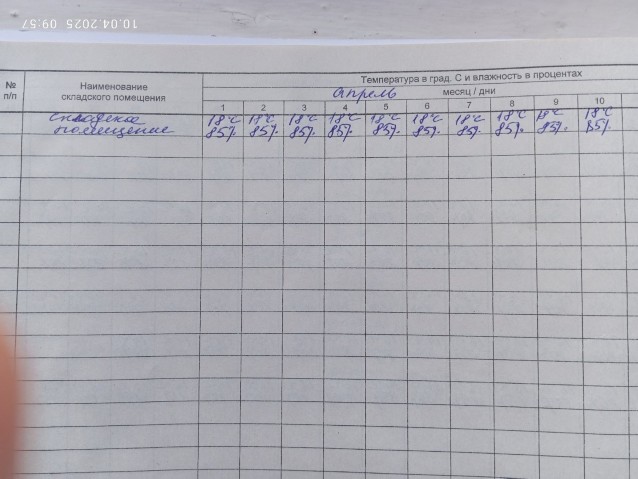 10.04.2025 09:57
№ п/п
Наименование складского помещения
Температура в град. С и влажность в процентах
апрель месяц / дни
1 2 3 4 5 6 7 8 9 10
складское 18°C 18°C 18°C 18°C 18°C 18°C 18°C 18°C 18°C 18°C
помещение 85% 85% 85% 85% 85% 85% 85% 85% 85% 85%